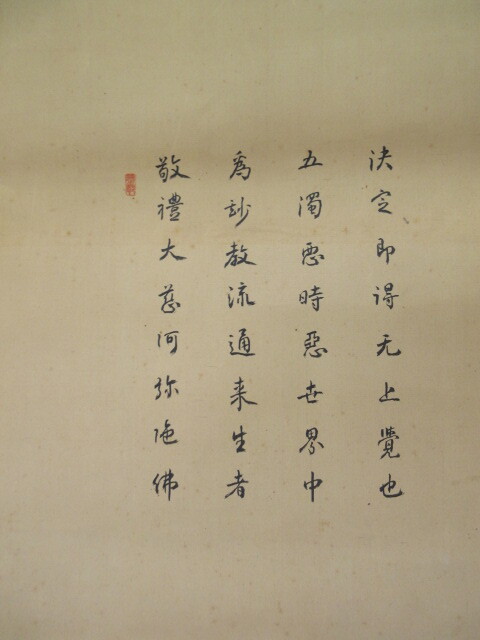 决定即得无上覺也
五濁惡時惡世界中
為妙教流通来生者
敬禮大慈阿弥陀佛